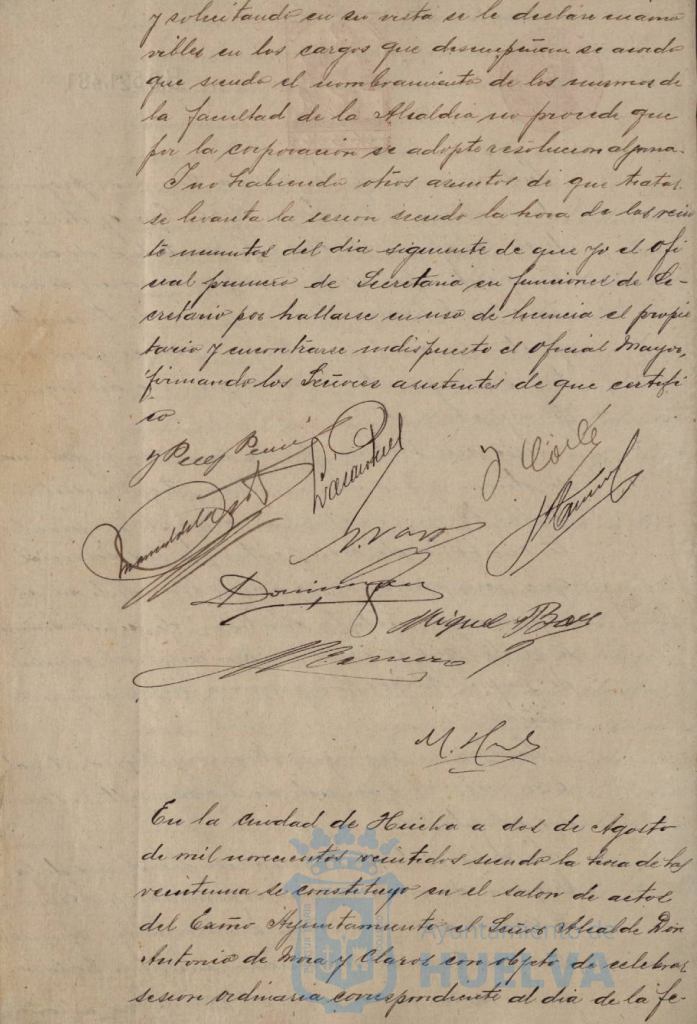 y solicitando en su vista se le declare inamo
vibles en los cargos que desempeñan se acordó
que siendo el nombramiento de los mismos de
la facultad de la Alcaldia no procede que
por la corporación se adopte resolucion alguna.
Y no habiendo otros asuntos de que tratar
se levanta la sesion siendo la hora de las vein
te minutos del dia siguiente de que yo el Ofi
cial primero de Secretaria en funciones de Se-
cretario por hallarse en uso de licencia el propie
tario y encontrarse indispuesto el Oficial Mayor,
firmando los Señores asistentes de que certifi
co.
Dominguez
Miguel
Romero
M.
En la ciudad de Huelva a dos de Agosto
de mil novecientos veintidos siendo la hora de las
veintiuna se constituyó en el salon de actos
del Excmo Ayuntamiento el Señor Alcalde Don
Antonio de Mora y Claros con objeto de celebrar
sesion ordinaria correspondiente al dia de la fe-
Ayuntamiento de
HUELVA